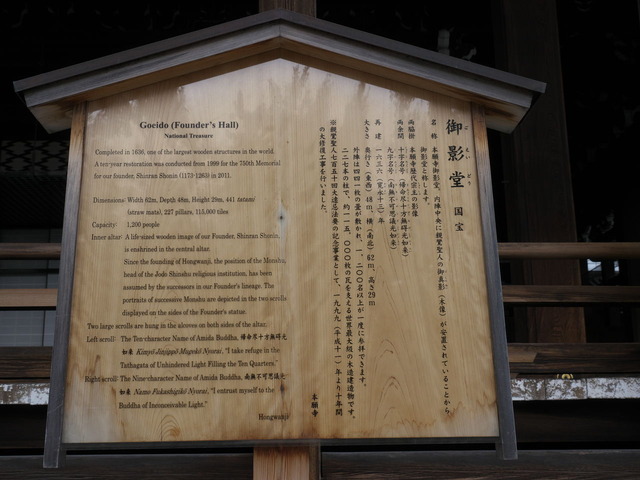 Goeido (Founder's Hall)
National Treasure
Completed in 1636, one of the largest wooden structures in the world.
A ten-year restoration was conducted from 1999 for the 750th Memorial
for our founder, Shinran Shonin (1173-1263) in 2011.
Dimensions: Width 62m, Depth 48m, Height 29m, 441 tatami
(straw mats), 227 pillars, 115,000 tiles
Capacity: 1,200 people
Inner altar: A life-sized wooden image of our Founder, Shinran Shonin,
is enshrined in the central altar.
Since the founding of Hongwanji, the position of the Monshu,
head of the Jodo Shinshu religious institution, has been
assumed by the successors in our Founder's lineage. The
portraits of successive Monshu are depicted in the two scrolls
displayed on the sides of the Founder's statue.
Two large scrolls are hung in the alcoves on both sides of the altar:
Left scroll: The Ten-character Name of Amida Buddha, 帰命尽十方無碍光
如来 Kimyō Jinjippō Mugekō Nyorai, "I take refuge in the
Tathagata of Unhindered Light Filling the Ten Quarters."
Right scroll: The Nine-character Name of Amida Buddha, 南無不可思議光
如来 Namo Fukashigikō Nyorai, "I entrust myself to the
Buddha of Inconceivable Light."
Hongwanji
御影堂 国宝
ごえいどう
名称 本願寺御影堂。内陣中央に親鸞聖人の御真影(木像)が安置されていることから、
御影堂と称します。
両脇掛 本願寺歴代宗主の影像
両余間 十字名号(帰命尽十方無碍光如来)
九字名号(南無不可思議光如来)
再建 一六三六(寛永十三)年
大きさ 奥行き(東西)48m、横(南北)62m、高さ29m
四四一枚の畳が敷かれ、一、二〇〇名以上が一度に参拝できます。
二二七本の柱で、約一一五、〇〇〇枚の瓦を支える世界最大級の木造建造物です。
※親鸞聖人七百五十回大遠忌法要の記念事業として、一九九九(平成十一)年より十年間
の大修復工事を行いました。
本願寺